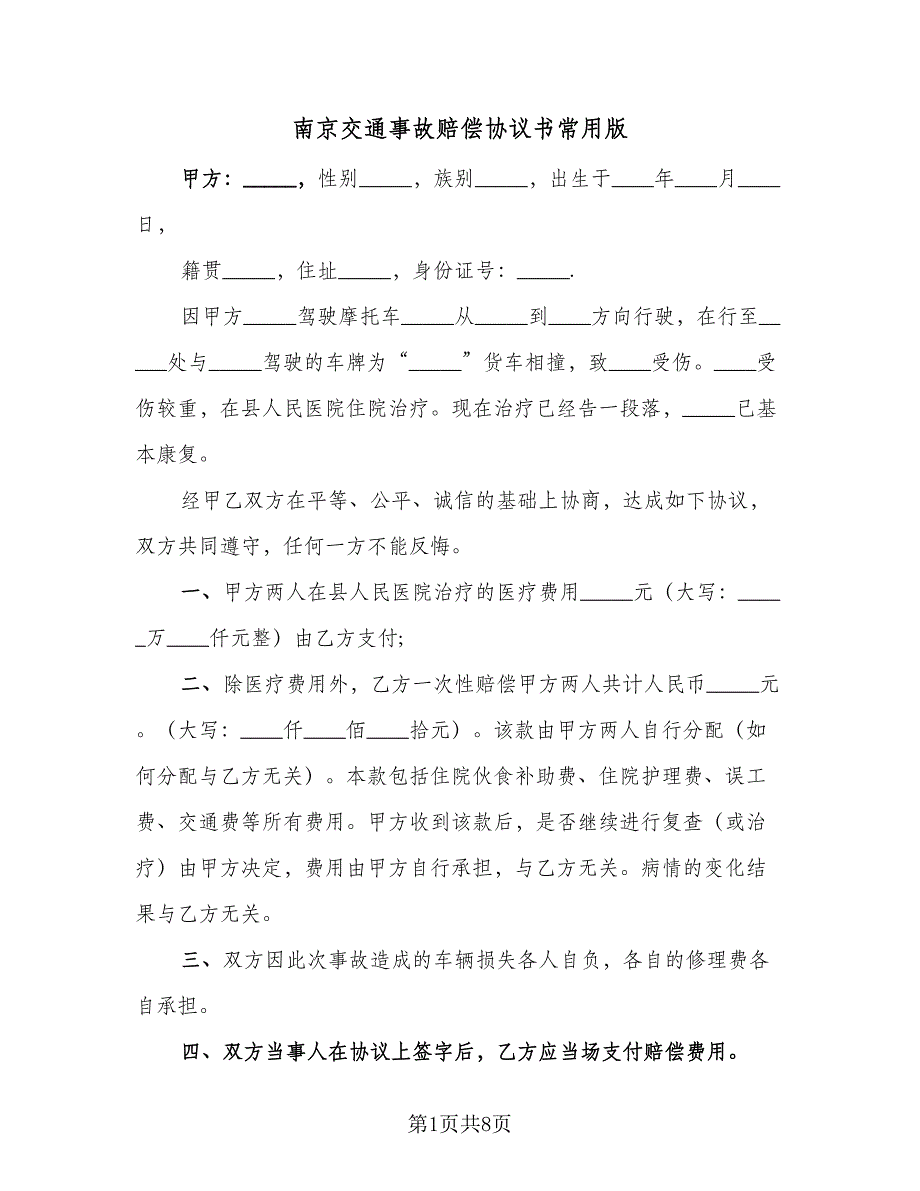 南京交通事故赔偿协议书常用版
甲方：_____，性别_____，族别_____，出生于____年____月____
日，
籍贯_____，住址_____，身份证号：_____.
因甲方_____驾驶摩托车_____从_____到____方向行驶，在行至__
___处与_____驾驶的车牌为“_____”货车相撞，致____受伤。____受
伤较重，在县人民医院住院治疗。现在治疗已经告一段落，_____已基
本康复。
经甲乙双方在平等、公平、诚信的基础上协商，达成如下协议，
双方共同遵守，任何一方不能反悔。
一、甲方两人在县人民医院治疗的医疗费用_____元（大写：____
_万____仟元整）由乙方支付;
二、除医疗费用外，乙方一次性赔偿甲方两人共计人民币_____元
。（大写：____仟____佰____拾元）。该款由甲方两人自行分配（如
何分配与乙方无关）。本款包括住院伙食补助费、住院护理费、误工
费、交通费等所有费用。甲方收到该款后，是否继续进行复查（或治
疗）由甲方决定，费用由甲方自行承担，与乙方无关。病情的变化结
果与乙方无关。
三、双方因此次事故造成的车辆损失各人自负，各自的修理费各
自承担。
四、双方当事人在协议上签字后，乙方应当场支付赔偿费用。
第1页共8页